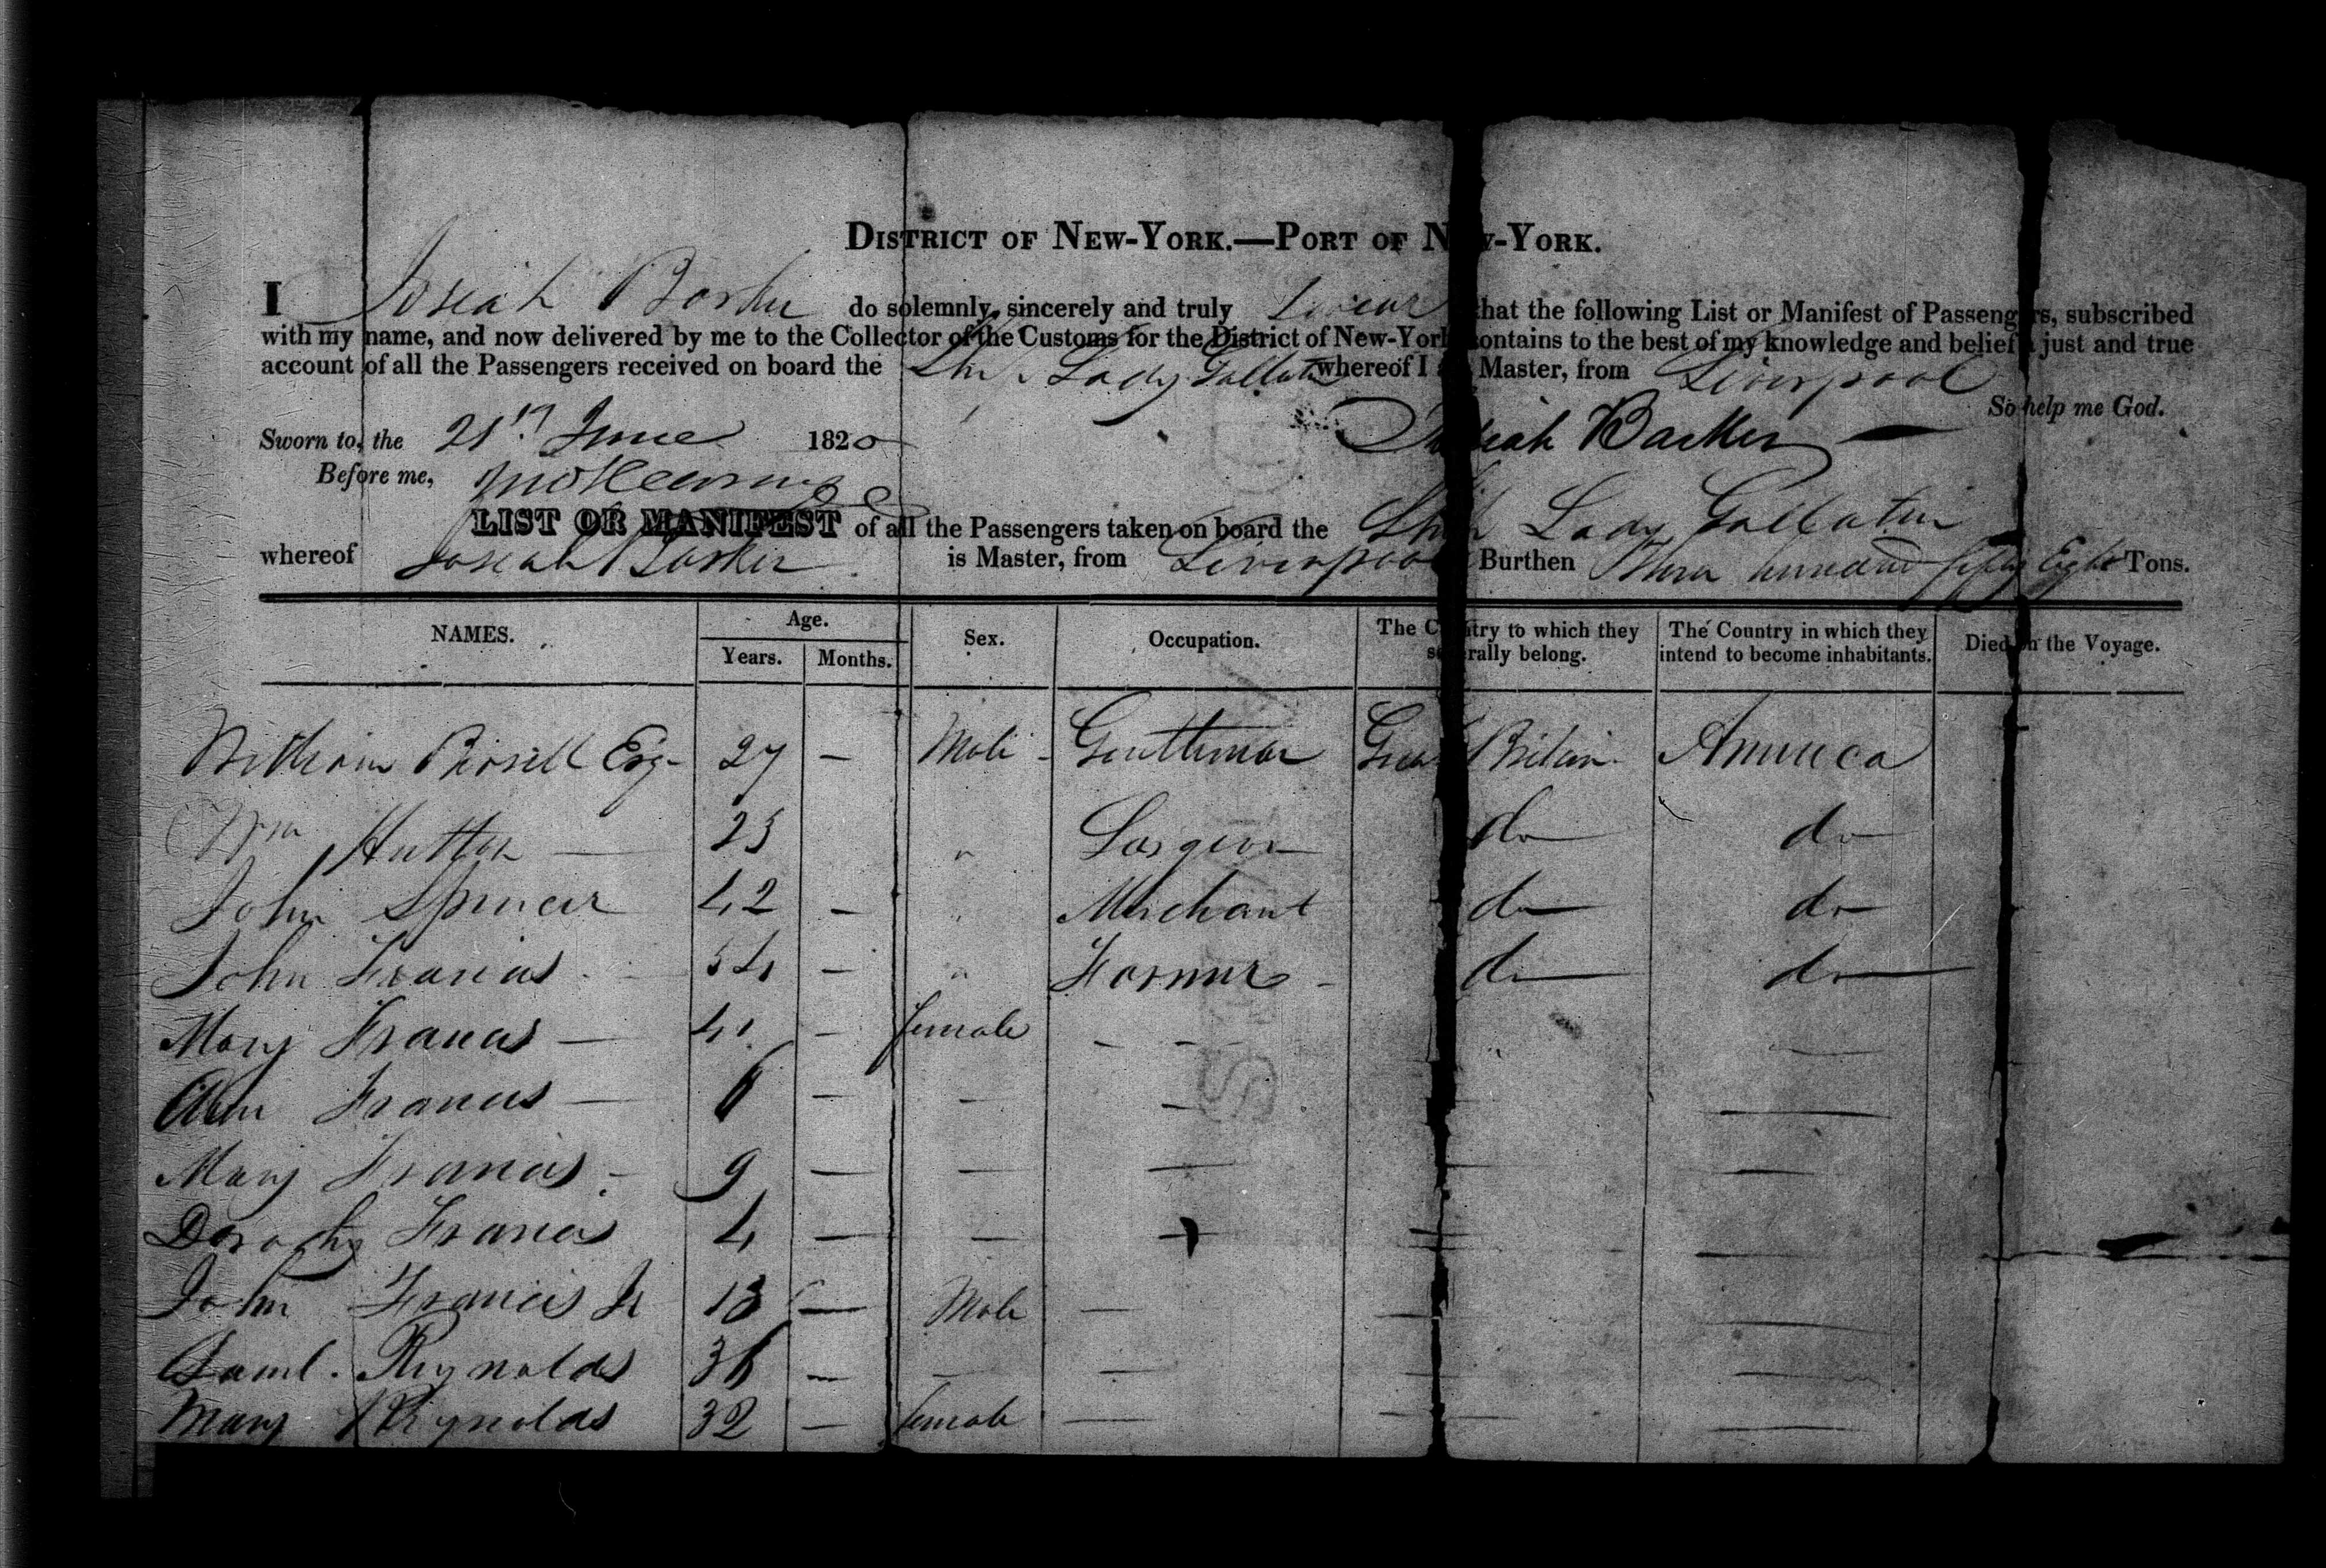 DISTRICT OF NEW-YORK.—PORT OF N W-YORK.
I Josiah Barker do solemnly, sincerely and truly Swear that the following List or Manifest of Passengers, subscribed
with my name, and now delivered by me to the Collector of the Customs for the District of New-York contains to the best of my knowledge and belief a just and true
account of all the Passengers received on board the Ship Lady Gallatin whereof I Master, from Liverpool
So help me God.
Sworn to, the 21st June 1820 Josiah Barker
Before me,
LIST OR MANIFEST of all the Passengers taken on board the Ship Lady Gallatin
whereof Josiah Barker is Master, from Liverpool Burthen Three hundred fifty Eight Tons.
NAMES. Age. Years. Months. Sex. Occupation. The Country to which they severally belong. The Country in which they intend to become inhabitants. Died on the Voyage.
William Esq 27 — Male Gentleman Great Britain America
Wm Hutton — 25 " Surgeon do do
John Spencer 42 — " Merchant do do
John Francis 54 — " Farmer do do
Mary Francis — 41 — female — —
Ann Francis — — — — —
Mary Francis 9 — — — —
Dorothy Francis 4 — — — —
John Francis Jr 13 — Male — —
Saml. Reynolds 36 — — — —
Mary Reynolds 32 — female — —